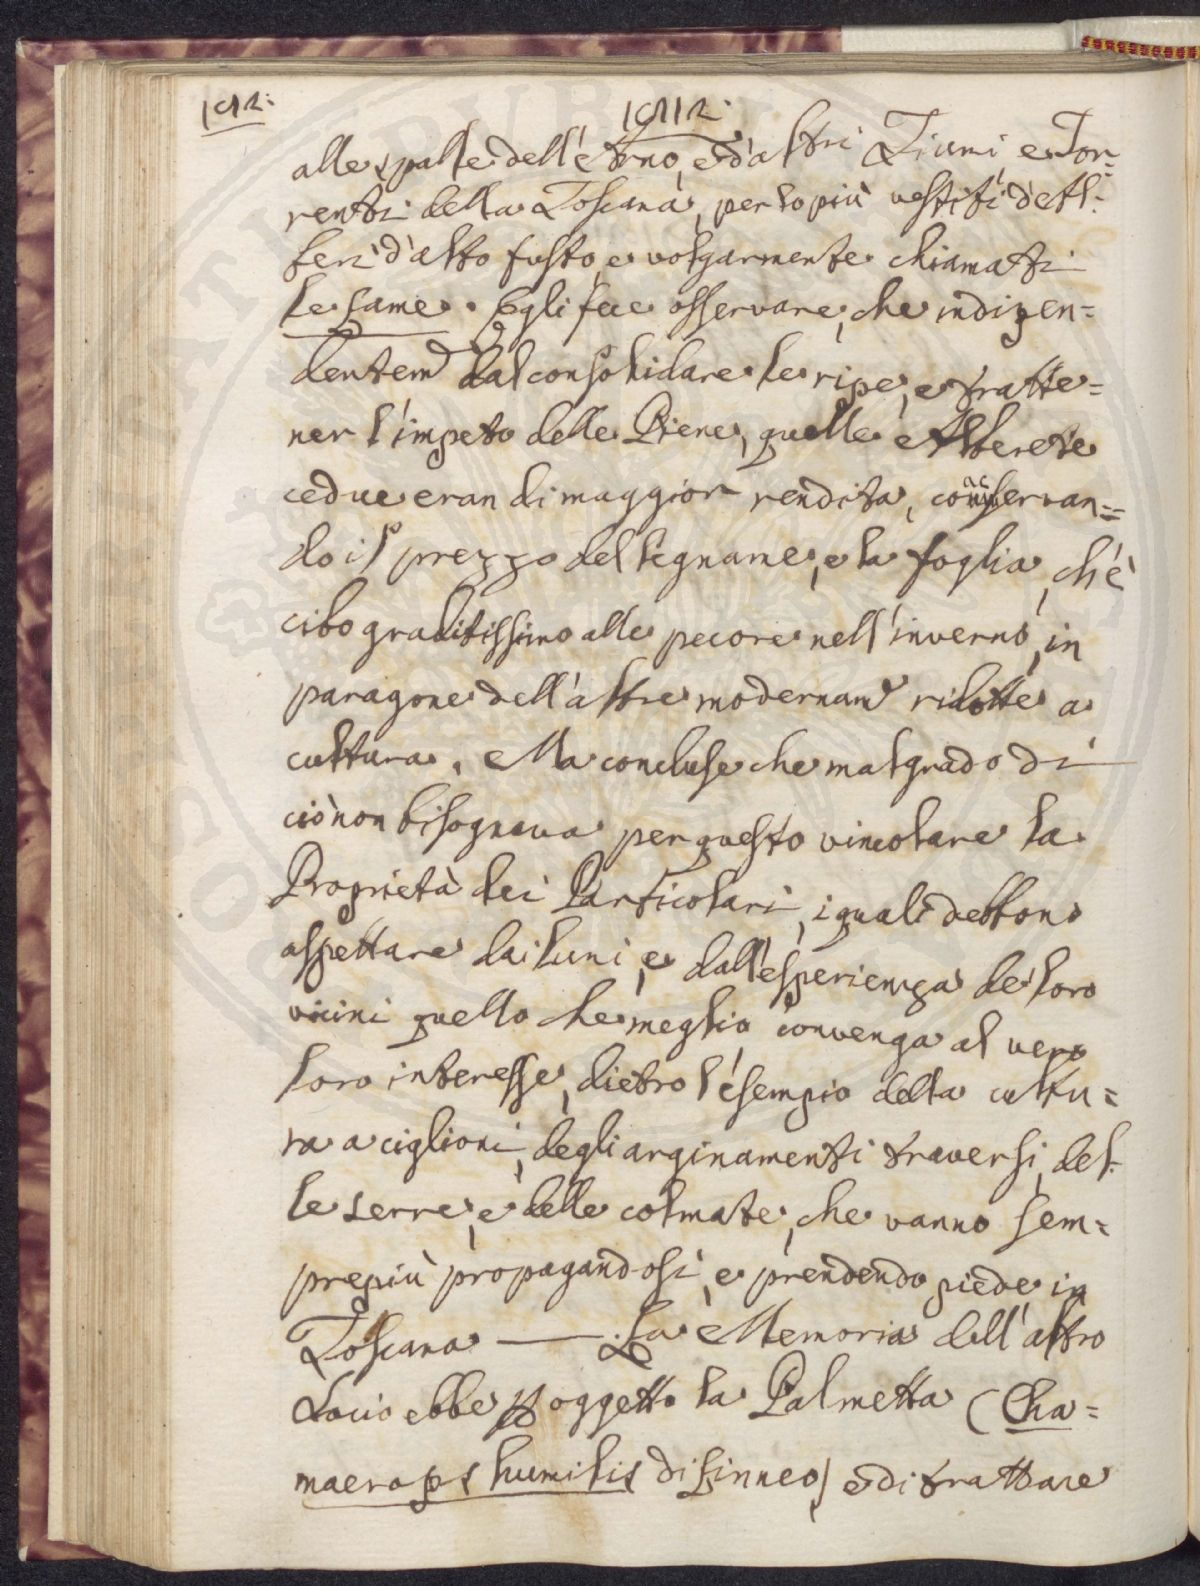 alle spalle dell'Arno, e d'altri Fiumi e Tor=
renti della Toscana, per lo più vestiti d'Al=
beri d'alto fusto, e volgarmente chiamati
le Lame. Egli fece osservare, che indipen=
dentem.e dal consolidare le ripe, e tratte=
ner l'impeto delle Piene, quelle Alberete
cedue eran di maggior rendita, conservan=
do il prezzo del legname, e la foglia, ch'è
cibo graditissimo alle pecore nell'inverno, in
paragone dell'altre modernam.e ridotte a
cultura. Ma concluse che malgrado di
ciò non bisognava per questo vincolare la
Proprietà dei Particolari, i quali debbono
aspettare dai lumi, e dall'esperienza de' loro
vicini quello che meglio convenga al vero
loro interesse, dietro l'esempio della cultu=
ra a ciglioni, degli arginamenti traversi, del=
le serre, e delle colmate, che vanno sem=
prepiù propagandosi, e prendendo piede in
Toscana — La Memoria dell'altro
Socio ebbe p oggetto la Palmetta (Cha=
maerops humilis di Linneo) e di trattare